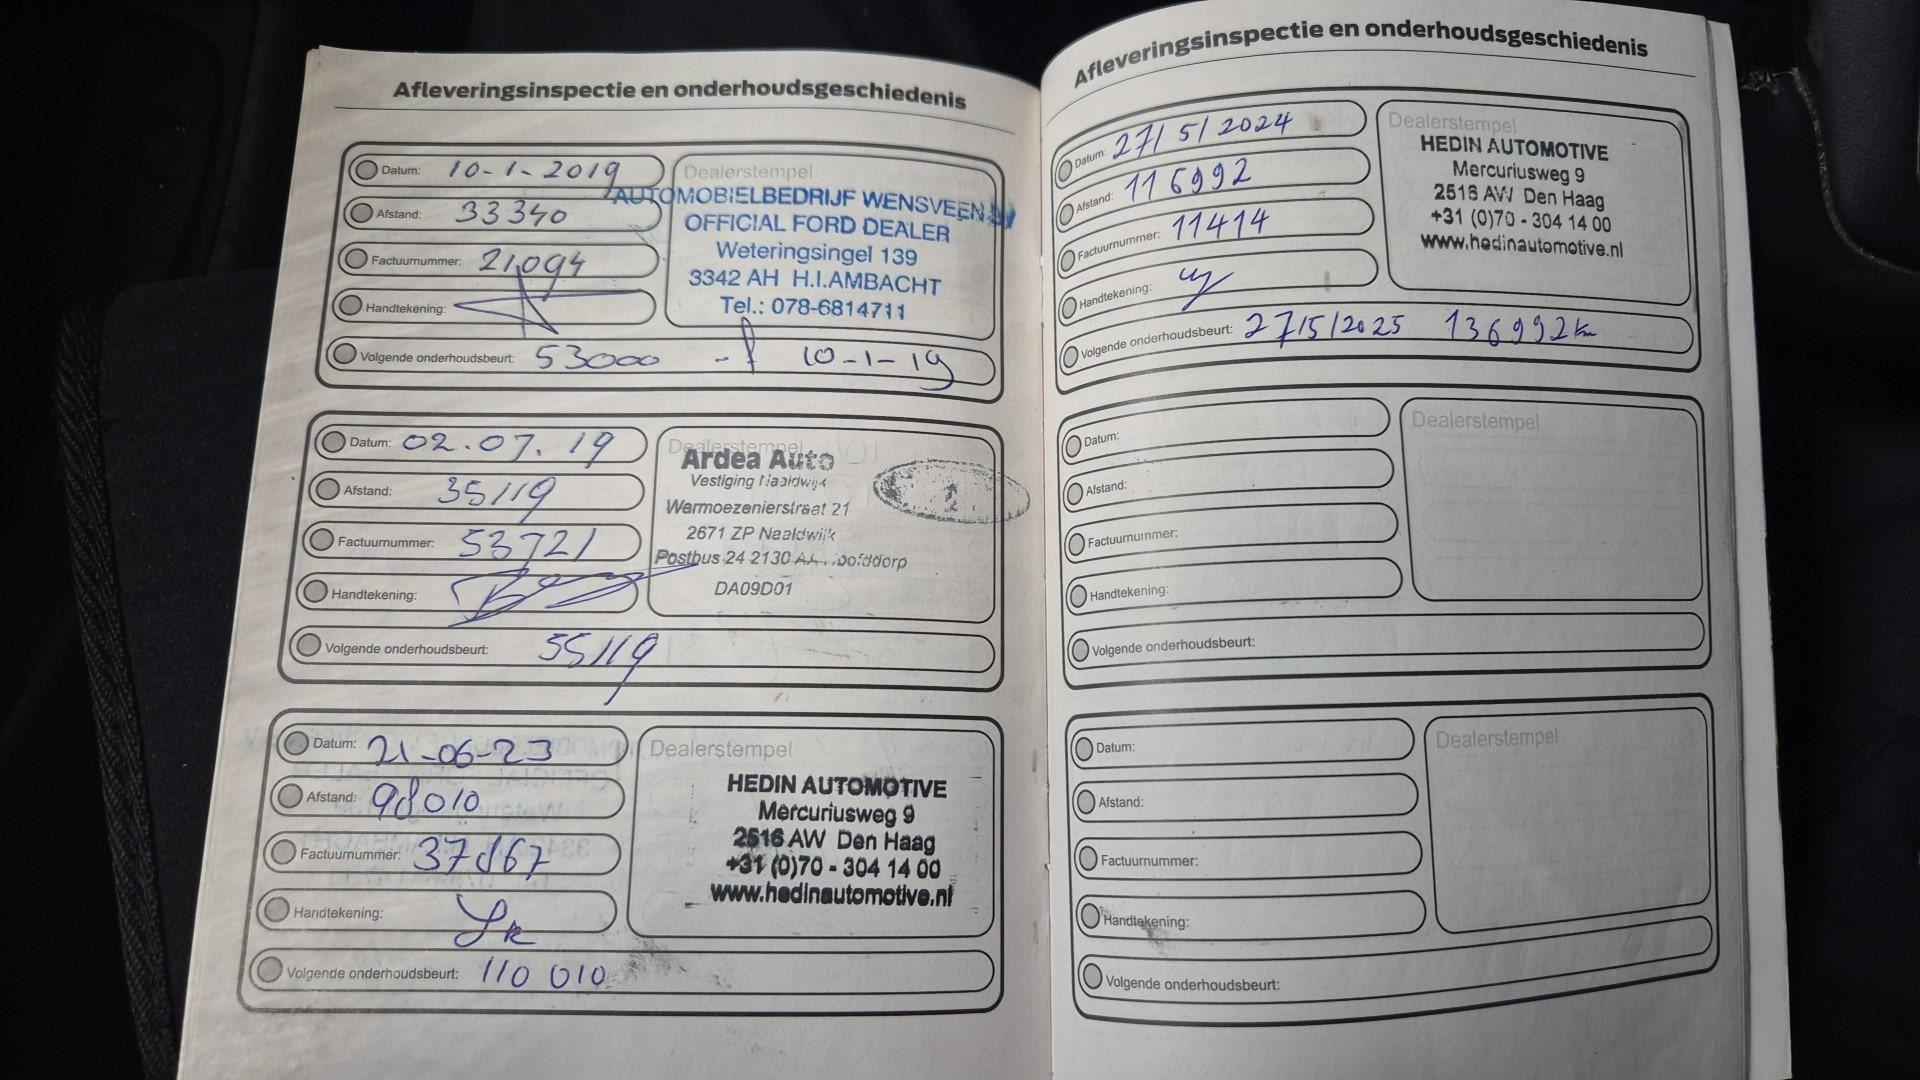 Afleveringsinspectie en onderhoudsgeschiedenis
Datum: 10-1-2019
Afstand: 33340
Factuurnummer: 21094
Handtekening:
Volgende onderhoudsbeurt: 53000 10-1-19
Dealerstempel
AUTOMOBIELBEDRIJF WENSVEEN BV
OFFICIAL FORD DEALER
Weteringsingel 139
3342 AH H.I.AMBACHT
Tel.: 078-6814711
Datum: 02.07.19
Afstand: 35119
Factuurnummer: 53721
Handtekening:
Volgende onderhoudsbeurt: 55119
Dealerstempel
Ardea Auto
Vestiging Naaldwijk
Warmoezenierstraat 21
2671 ZP Naaldwijk
Postbus 24 2130 AA Hoofddorp
DA09D01
Datum: 21-06-23
Afstand: 98010
Factuurnummer:
Handtekening:
Volgende onderhoudsbeurt: 110 010
Dealerstempel
HEDIN AUTOMOTIVE
Mercuriusweg 9
2516 AW Den Haag
+31 (0)70 - 304 14 00
www.hedinautomotive.nl
Afleveringsinspectie en onderhoudsgeschiedenis
Datum: 27/5/2024
Afstand: 116992
Factuurnummer: 11414
Handtekening:
Volgende onderhoudsbeurt: 27/5/2025 136992 km
Dealerstempel
HEDIN AUTOMOTIVE
Mercuriusweg 9
2516 AW Den Haag
+31 (0)70 - 304 14 00
www.hedinautomotive.nl
Datum:
Afstand:
Factuurnummer:
Handtekening:
Volgende onderhoudsbeurt:
Dealerstempel
Datum:
Afstand:
Factuurnummer:
Handtekening:
Volgende onderhoudsbeurt:
Dealerstempel